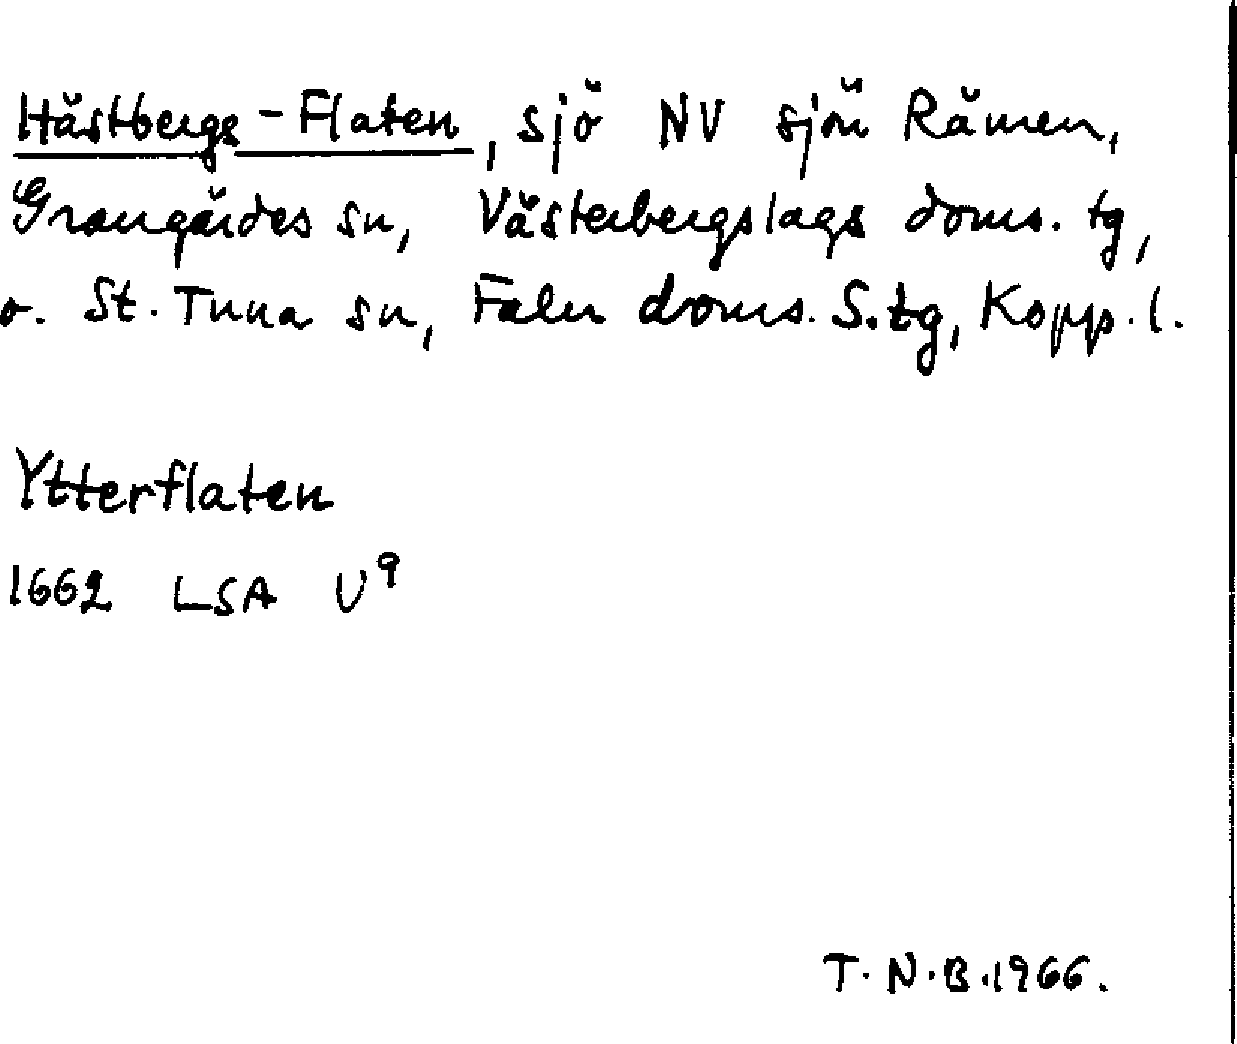 Hästbergs-Flaten, sjö NV sjön Rämen,
Grangärdes sn, Västerbergslags doms. tg,
o. St. Tuna sn, Falu doms. S.tg, Kopp. l.
Ytterflaten
1662 LSA U⁹
T.N.B.1966.